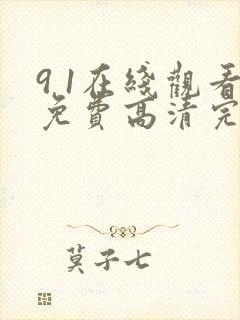 9.1在綫觀看
免費高清完
莫子七